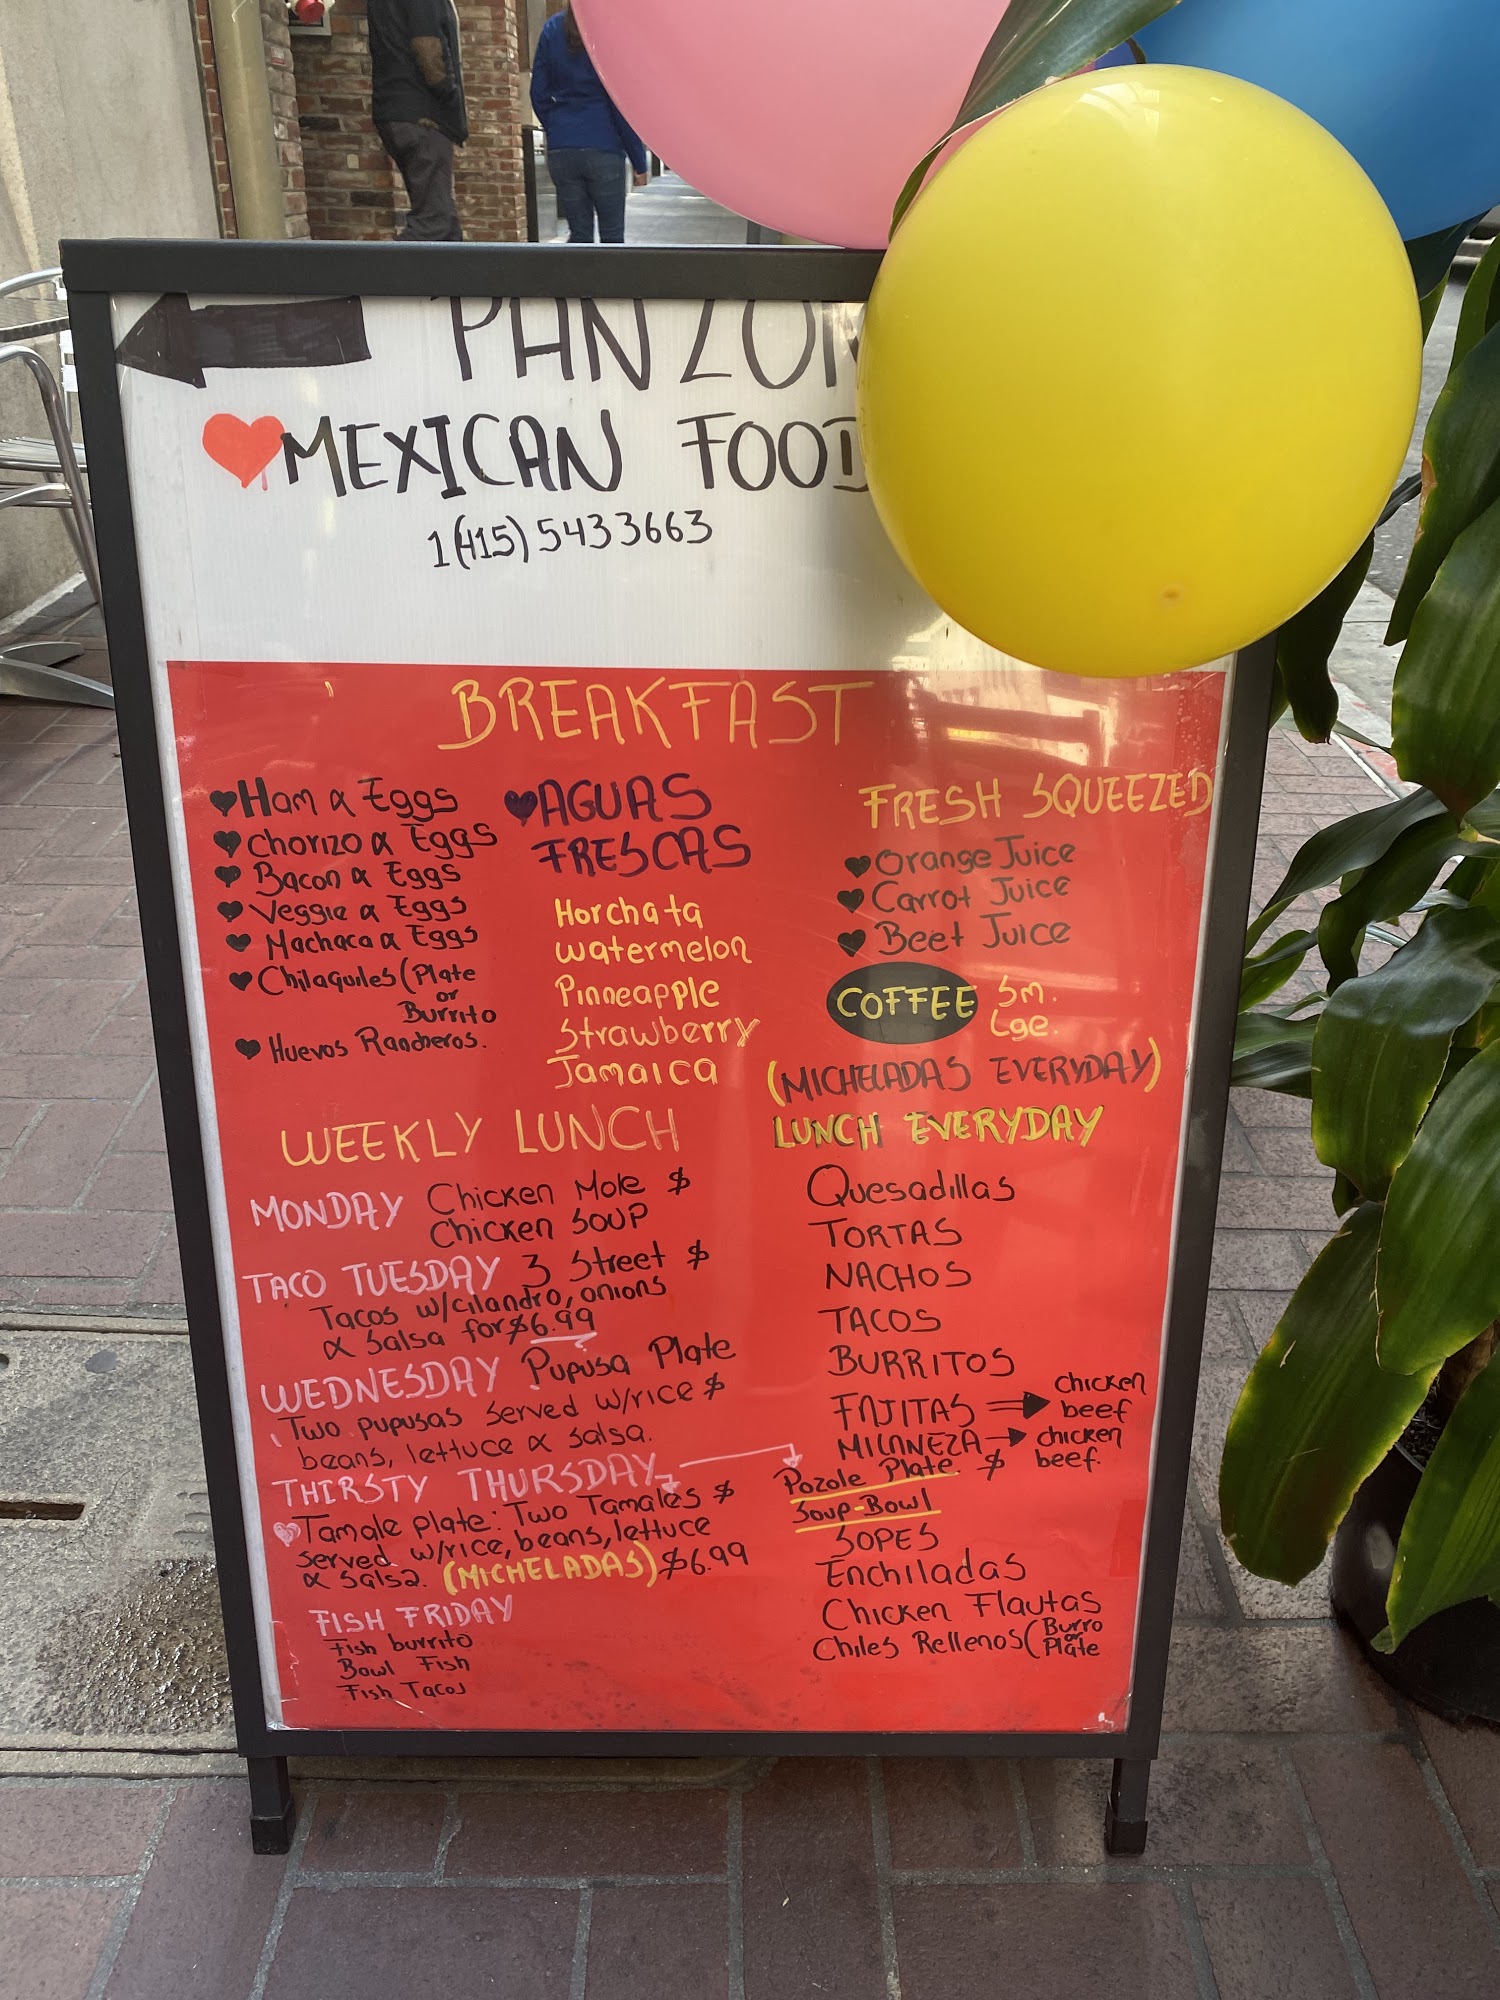 MEXICAN FOOD
1(415) 5433663
BREAKFAST
Ham & Eggs
Chorizo & Eggs
Bacon & Eggs
Veggie & Eggs
Machaca & Eggs
Chilaquiles (Plate
or
Burrito
Huevos Rancheros.
AGUAS
FRESCAS
Horchata
Watermelon
Pinneapple
Strawberry
Jamaica
FRESH SQUEEZED
Orange Juice
Carrot Juice
Beet Juice
COFFEE Sm.
Lge.
(MICHELADAS EVERYDAY)
WEEKLY LUNCH
MONDAY Chicken Mole $
Chicken SOUP
TACO TUESDAY 3 Street $
Tacos w/cilandro, onions
& Salsa for $6.99
WEDNESDAY Pupusa Plate
Two pupusas served w/rice $
beans, lettuce & salsa.
THIRSTY THURSDAY
Tamale plate: Two Tamales $
served w/rice, beans, lettuce
& salsa. (MICHELADAS) $6.99
FISH FRIDAY
Fish burrito
Bowl Fish
Fish Tacos
LUNCH EVERYDAY
Quesadillas
TORTAS
NACHOS
TACOS
BURRITOS
FAJITAS ⇒ chicken
beef
MILANEZA → chicken
beef.
Pozole Plate $
Soup-Bowl
SOPES
Enchiladas
Chicken Flautas
Chiles Rellenos (Burro
or
Plate